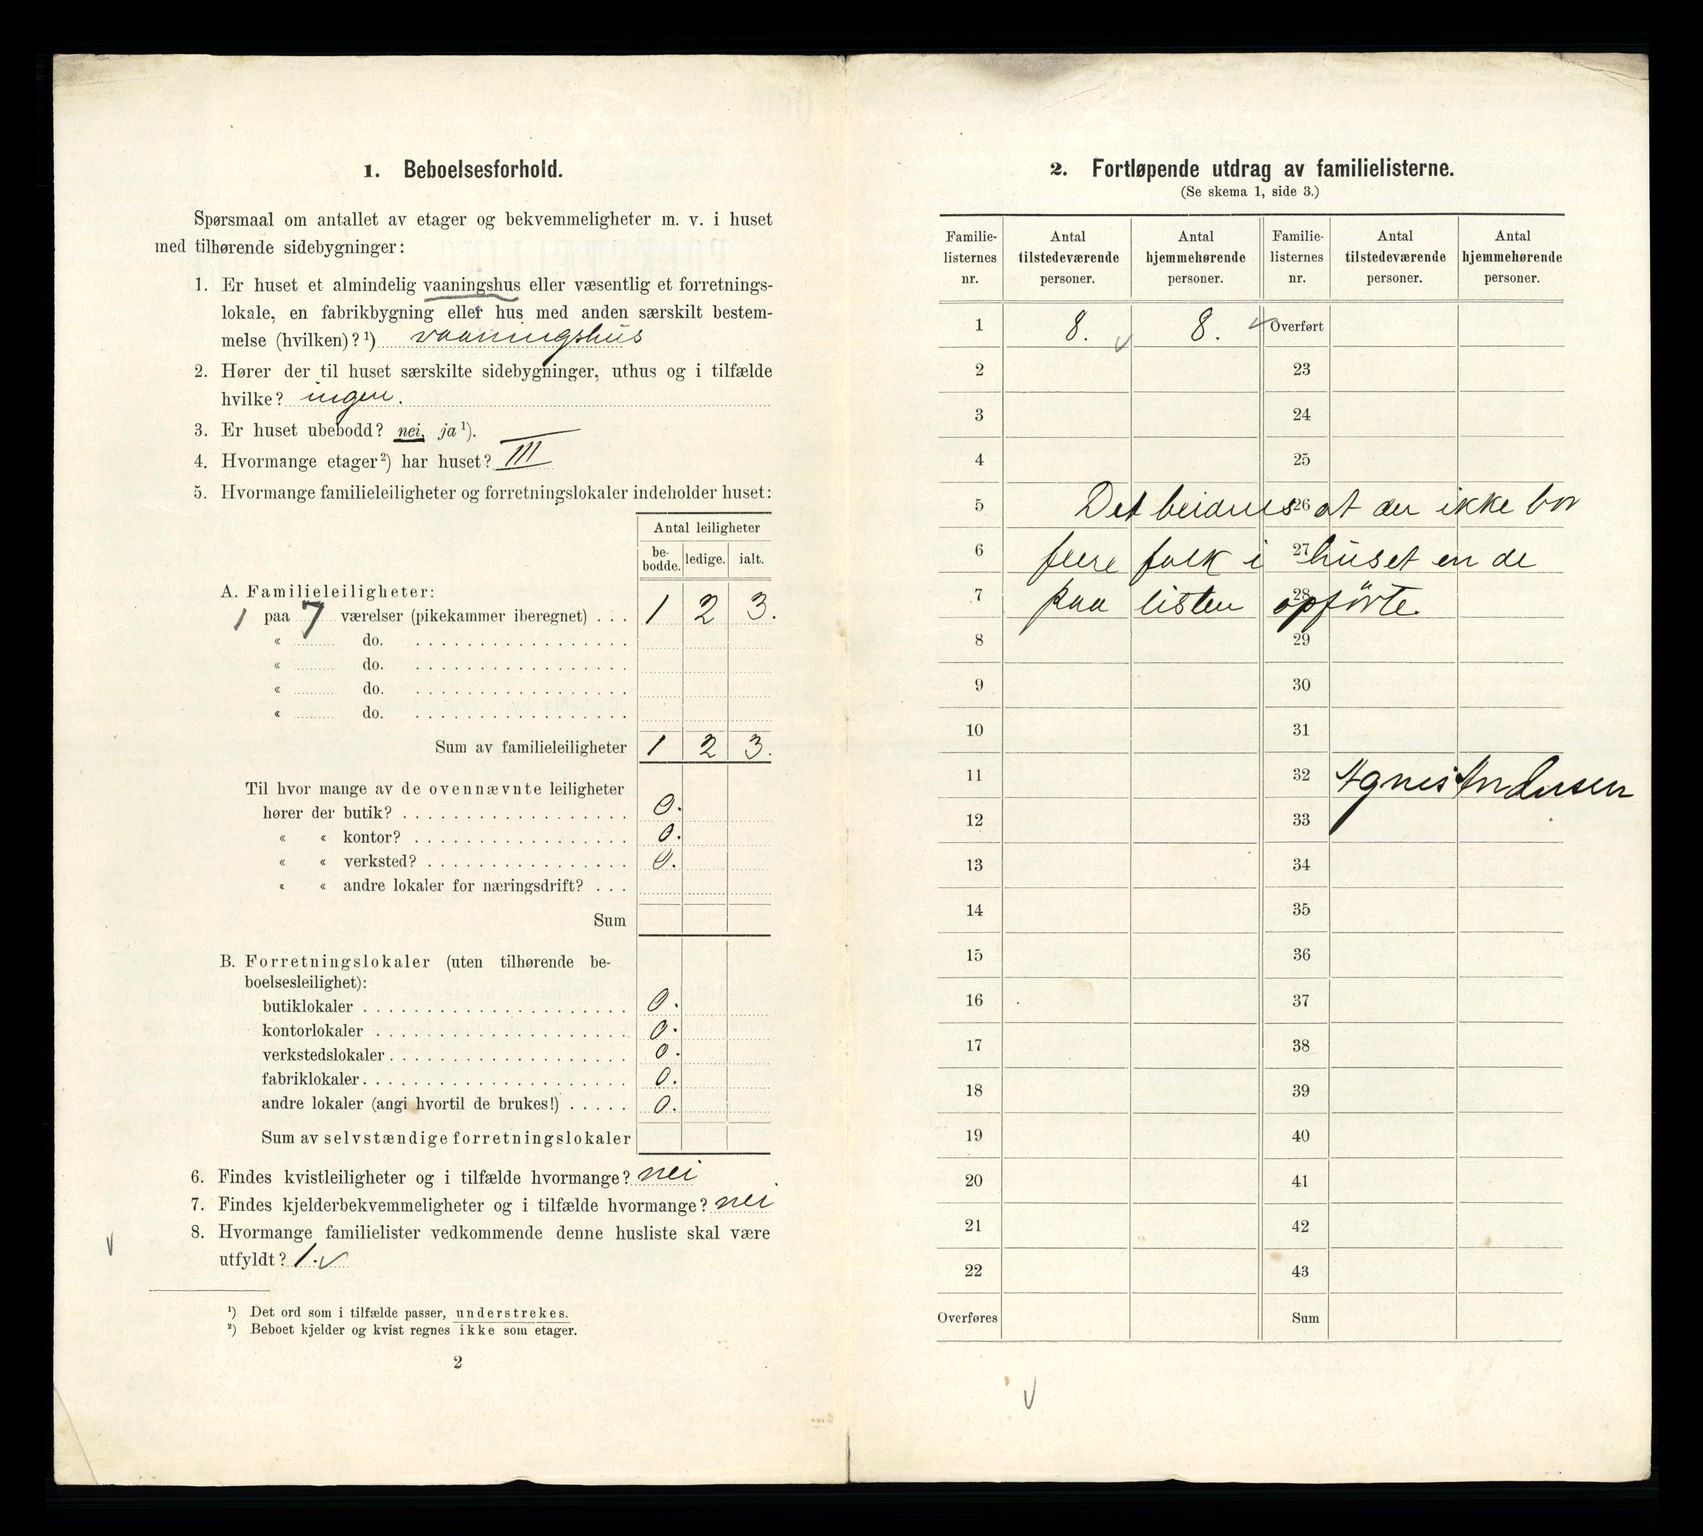 1. Beboelsesforhold.
Spørsmaal om antallet av etager og bekvemmeligheter m. v. i huset
med tilhørende sidebygninger:
1. Er huset et almindelig vaaningshus eller væsentlig et forretnings-
lokale, en fabrikbygning eller hus med anden særskilt bestem-
melse (hvilken)?¹) vaaningshus
2. Hører der til huset særskilte sidebygninger, uthus og i tilfælde
hvilke? ingen.
3. Er huset ubebodd? nei, ja¹).
4. Hvormange etager²) har huset? III
5. Hvormange familieleiligheter og forretningslokaler indeholder huset:
Antal leiligheter
be-bodde. ledige. ialt.
A. Familieleiligheter:
1 paa 7 værelser (pikekammer iberegnet) . . . 1 2 3.
« do.
« do.
« do.
« do.
Sum av familieleiligheter 1 2 3.
Til hvor mange av de ovennævnte leiligheter
hører der butik? 0.
« « kontor? 0.
« « verksted? 0.
« « andre lokaler for næringsdrift? . . .
Sum
B. Forretningslokaler (uten tilhørende be-
boelsesleilighet):
butiklokaler 0.
kontorlokaler 0.
verkstedslokaler 0.
fabriklokaler 0.
andre lokaler (angi hvortil de brukes!) 0.
Sum av selvstændige forretningslokaler
6. Findes kvistleiligheter og i tilfælde hvormange? nei
7. Findes kjelderbekvemmeligheter og i tilfælde hvormange? nei
8. Hvormange familielister vedkommende denne husliste skal være
utfyldt? 1. v
¹) Det ord som i tilfælde passer, understrekes.
²) Beboet kjelder og kvist regnes ikke som etager.
2
2. Fortløpende utdrag av familielisterne.
(Se skema 1, side 3.)
Familie-listernes nr. Antal tilstedeværende personer. Antal hjemmehørende personer. Familie-listernes nr. Antal tilstedeværende personer. Antal hjemmehørende personer.
1 8. v 8. v Overført
2 23
3 24
4 25
5 26
Det beidnes at der ikke bor
6 27
flere folk i huset en de
7 28
paa listen opførte.
8 29
9 30
10 31
11 32 Agnes Andersen
12 33
13 34
14 35
15 36
16 37
17 38
18 39
19 40
20 41
21 42
22 43
Overføres Sum